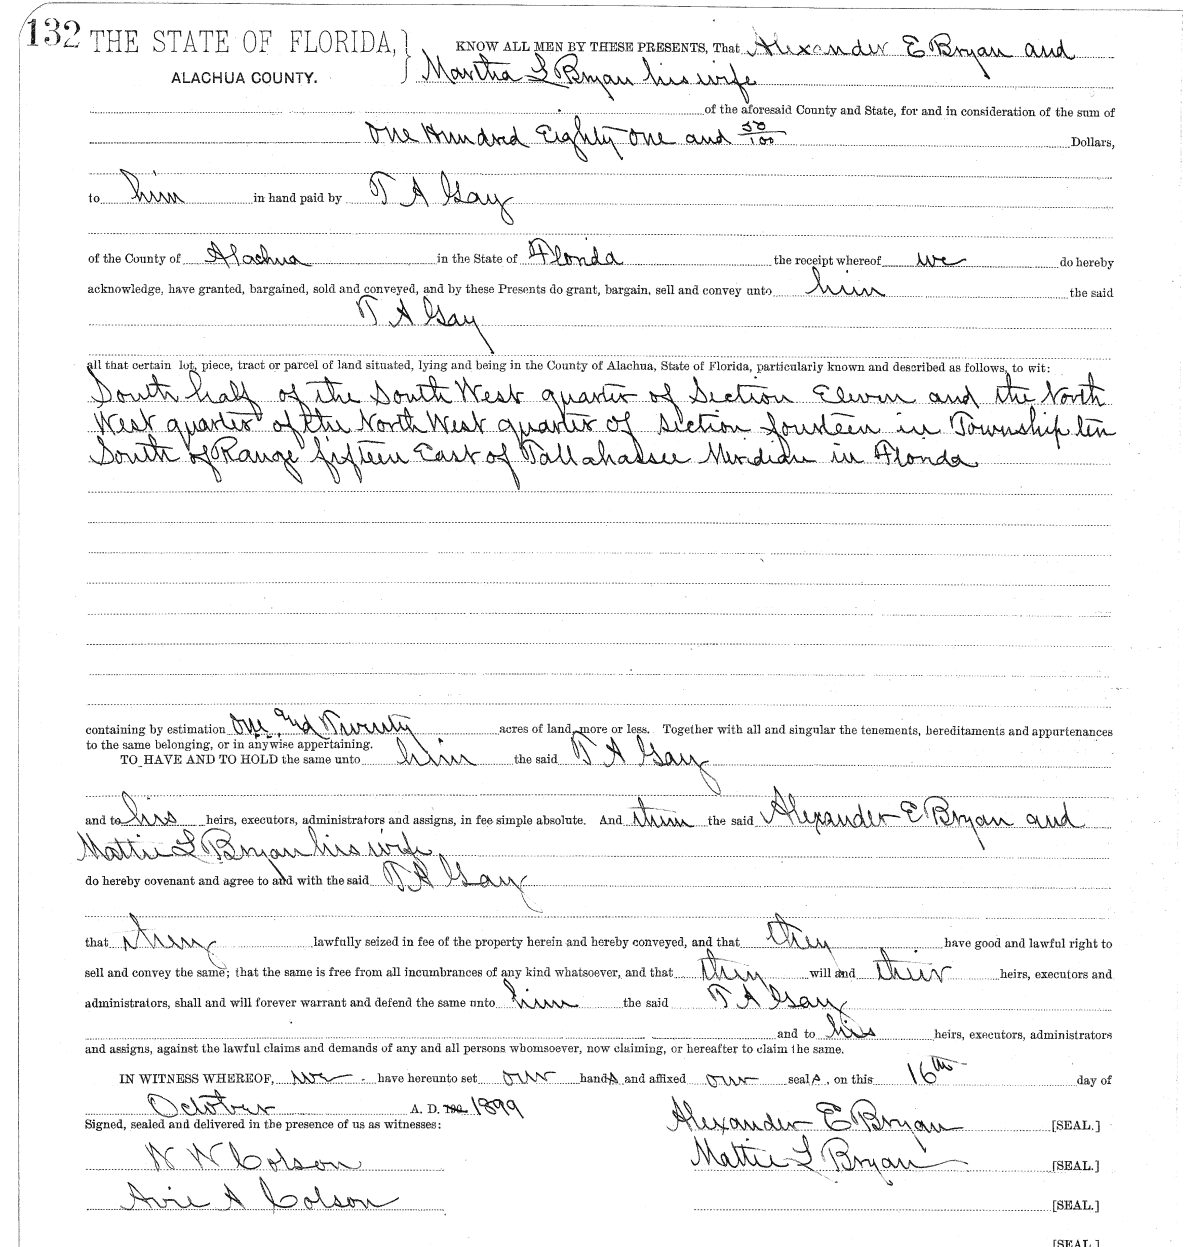 132 THE STATE OF FLORIDA, } KNOW ALL MEN BY THESE PRESENTS, That Alexander E Bryan and
ALACHUA COUNTY. Martha L Bryan his wife
of the aforesaid County and State, for and in consideration of the sum of
One Hundred Eighty one and 50/100 Dollars,
to him in hand paid by T A Gay
of the County of Alachua in the State of Florida the receipt whereof we do hereby
acknowledge, have granted, bargained, sold and conveyed, and by these Presents do grant, bargain, sell and convey unto him the said
T A Gay
all that certain lot, piece, tract or parcel of land situated, lying and being in the County of Alachua, State of Florida, particularly known and described as follows, to wit:
South half of the South West quarter of Section Eleven and the North
West quarter of the North West quarter of Section fourteen in Township ten
South of Range fifteen East of Tallahassee Meridian in Florida
containing by estimation One Hd Twenty acres of land, more or less. Together with all and singular the tenements, hereditaments and appurtenances
to the same belonging, or in anywise appertaining.
TO HAVE AND TO HOLD the same unto him the said T A Gay
and to his heirs, executors, administrators and assigns, in fee simple absolute. And them the said Alexander E Bryan and
Mattie L Bryan his wife
do hereby covenant and agree to and with the said T A Gay
that they lawfully seized in fee of the property herein and hereby conveyed, and that they have good and lawful right to
sell and convey the same; that the same is free from all incumbrances of any kind whatsoever, and that they will and their heirs, executors and
administrators, shall and will forever warrant and defend the same unto him the said T A Gay
and to his heirs, executors, administrators
and assigns, against the lawful claims and demands of any and all persons whomsoever, now claiming, or hereafter to claim the same.
IN WITNESS WHEREOF, we have hereunto set our hands and affixed our seals, on this 16th day of
October A. D. 1899
Signed, sealed and delivered in the presence of us as witnesses: Alexander E Bryan [SEAL.]
W W Colson Mattie L Bryan [SEAL.]
Avie A Colson [SEAL.]
[SEAL.]